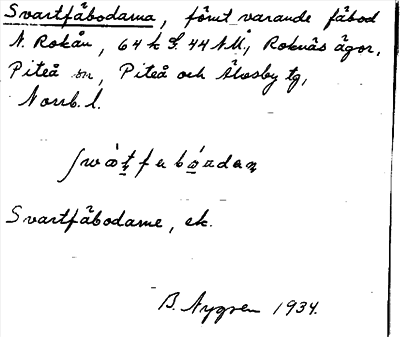 Svartfäbodarna, förut varande fäbod
N. Rokån, 64 k S. 44 N.V., Roknäs ägor,
Piteå sn, Piteå och Älvsby tg,
Norrb. l.
Svartfäbodarne, ek.
B. Nygren 1934.